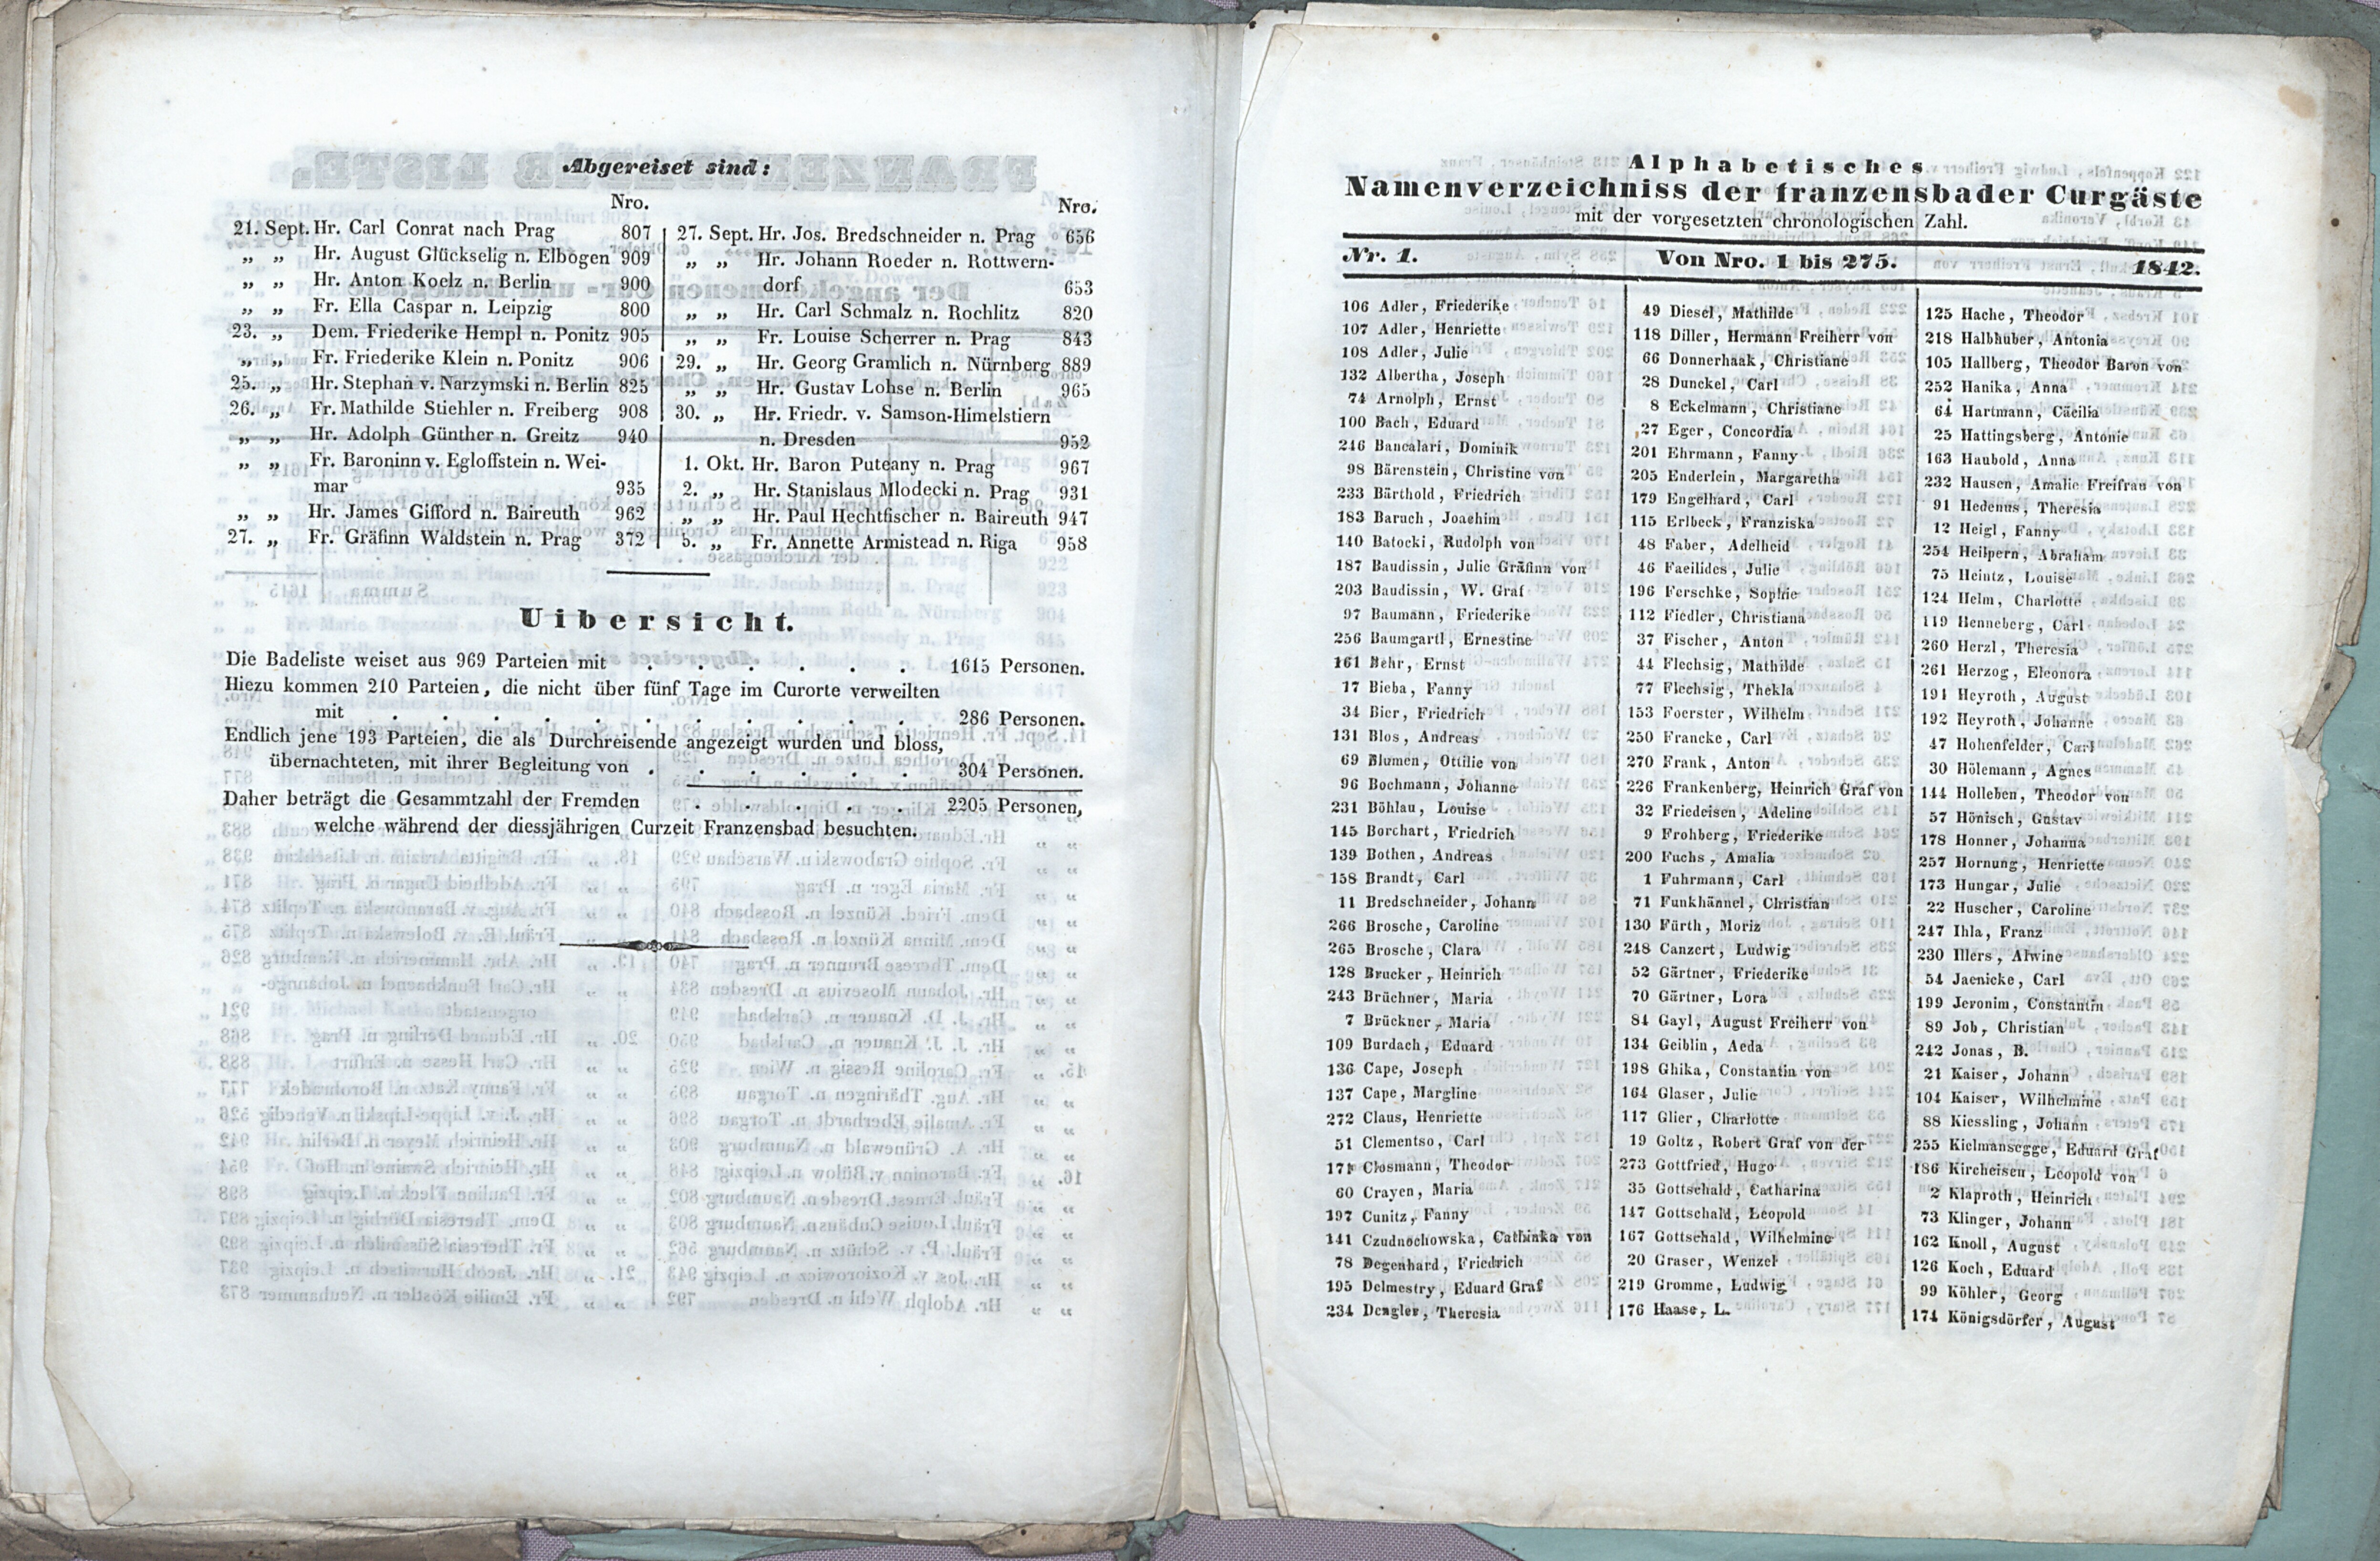 Abgereiset sind:
Nro.
21. Sept. Hr. Carl Conrat nach Prag 807
„ „ Hr. August Glückselig n. Elbogen 909
„ „ Hr. Anton Koelz n. Berlin 900
„ „ Fr. Ella Caspar n. Leipzig 800
23. „ Dem. Friederike Hempl n. Ponitz 905
„ „ Fr. Friederike Klein n. Ponitz 906
25. „ Hr. Stephan v. Narzymski n. Berlin 825
26. „ Fr. Mathilde Stiehler n. Freiberg 908
„ „ Hr. Adolph Günther n. Greitz 940
„ „ Fr. Baroninn v. Egloffstein n. Wei-
mar 935
„ „ Hr. James Gifford n. Baireuth 962
27. „ Fr. Gräfinn Waldstein n. Prag 372
Nro.
27. Sept. Hr. Jos. Bredschneider n. Prag 656
„ „ Hr. Johann Roeder n. Rottwern-
dorf 653
„ „ Hr. Carl Schmalz n. Rochlitz 820
„ „ Fr. Louise Scherrer n. Prag 843
29. „ Hr. Georg Gramlich n. Nürnberg 889
„ „ Hr. Gustav Lohse n. Berlin 965
30. „ Hr. Friedr. v. Samson-Himelstiern
n. Dresden 952
1. Okt. Hr. Baron Puteany n. Prag 967
2. „ Hr. Stanislaus Mlodecki n. Prag 931
„ „ Hr. Paul Hechtfischer n. Baireuth 947
5. „ Fr. Annette Armistead n. Riga 958
Uibersicht.
Die Badeliste weiset aus 969 Parteien mit . . . . . . 1615 Personen.
Hiezu kommen 210 Parteien, die nicht über fünf Tage im Curorte verweilten
mit . . . . . . . . . . . 286 Personen.
Endlich jene 193 Parteien, die als Durchreisende angezeigt wurden und bloss,
übernachteten, mit ihrer Begleitung von . . . . . . 304 Personen.
Daher beträgt die Gesammtzahl der Fremden . . . . . 2205 Personen,
welche während der diessjährigen Curzeit Franzensbad besuchten.
Alphabetisches
Namenverzeichniss der franzensbader Curgäste
mit der vorgesetzten chronologischen Zahl.
Nr. 1. Von Nro. 1 bis 275. 1842.
106 Adler, Friederike
107 Adler, Henriette
108 Adler, Julie
132 Albertha, Joseph
74 Arnolph, Ernst
100 Bach, Eduard
246 Bancalari, Dominik
98 Bärenstein, Christine von
233 Bärthold, Friedrich
183 Baruch, Joachim
140 Batocki, Rudolph von
187 Baudissin, Julie Gräfinn von
203 Baudissin, W. Graf
97 Baumann, Friederike
256 Baumgartl, Ernestine
161 Behr, Ernst
17 Bieba, Fanny
34 Bier, Friedrich
131 Blos, Andreas
69 Blumen, Ottilie von
96 Bochmann, Johanne
231 Böhlau, Louise
145 Borchart, Friedrich
139 Bothen, Andreas
158 Brandt, Carl
11 Bredschneider, Johann
266 Brosche, Caroline
265 Brosche, Clara
128 Brucker, Heinrich
243 Brüchner, Maria
7 Brückner, Maria
109 Burdach, Eduard
136 Cape, Joseph
137 Cape, Margline
272 Claus, Henriette
51 Clementso, Carl
171 Closmann, Theodor
60 Crayen, Maria
197 Cunitz, Fanny
141 Czudnochowska, Cathinka von
78 Degenhard, Friedrich
195 Delmestry, Eduard Graf
234 Dengler, Theresia
49 Diesel, Mathilde
118 Diller, Hermann Freiherr von
66 Donnerhaak, Christiane
28 Dunckel, Carl
8 Eckelmann, Christiane
27 Eger, Concordia
201 Ehrmann, Fanny
205 Enderlein, Margaretha
179 Engelhard, Carl
115 Erlbeck, Franziska
48 Faber, Adelheid
46 Facilides, Julie
196 Ferschke, Sophie
112 Fiedler, Christiana
37 Fischer, Anton
44 Flechsig, Mathilde
77 Flechsig, Thekla
153 Foerster, Wilhelm
250 Francke, Carl
270 Frank, Anton
226 Frankenberg, Heinrich Graf von
32 Friedeisen, Adeline
9 Frohberg, Friederike
200 Fuchs, Amalia
1 Fuhrmann, Carl
71 Funkhännel, Christian
130 Fürth, Moriz
248 Canzert, Ludwig
52 Gärtner, Friederike
70 Gärtner, Lora
84 Gayl, August Freiherr von
134 Geiblin, Aeda
198 Ghika, Constantin von
164 Glaser, Julie
117 Glier, Charlotte
19 Goltz, Robert Graf von der
273 Gottfried, Hugo
35 Gottschald, Catharina
147 Gottschald, Leopold
167 Gottschald, Wilhelmine
20 Graser, Wenzel
219 Gromme, Ludwig
176 Haase, L.
125 Hache, Theodor
218 Halbhuber, Antonia
105 Hallberg, Theodor Baron von
252 Hanika, Anna
64 Hartmann, Cäcilia
25 Hattingsberg, Antonie
163 Haubold, Anna
232 Hausen, Amalie Freifrau von
91 Hedenus, Theresia
12 Heigl, Fanny
254 Heilpern, Abraham
75 Heintz, Louise
124 Helm, Charlotte
119 Henneberg, Carl
260 Herzl, Theresia
261 Herzog, Eleonora
191 Heyroth, August
192 Heyroth, Johanne
47 Hohenfelder, Carl
30 Hölemann, Agnes
144 Holleben, Theodor von
57 Hönisch, Gustav
178 Honner, Johanna
257 Hornung, Henriette
173 Hungar, Julie
22 Huscher, Caroline
247 Ihla, Franz
230 Illers, Alwine
54 Jaenicke, Carl
199 Jeronim, Constantin
89 Job, Christian
242 Jonas, B.
21 Kaiser, Johann
104 Kaiser, Wilhelmine
88 Kiessling, Johann
255 Kielmansegge, Eduard Graf
186 Kircheisen, Leopold von
2 Klaproth, Heinrich
73 Klinger, Johann
162 Knoll, August
126 Koch, Eduard
99 Köhler, Georg
174 Königsdörfer, August